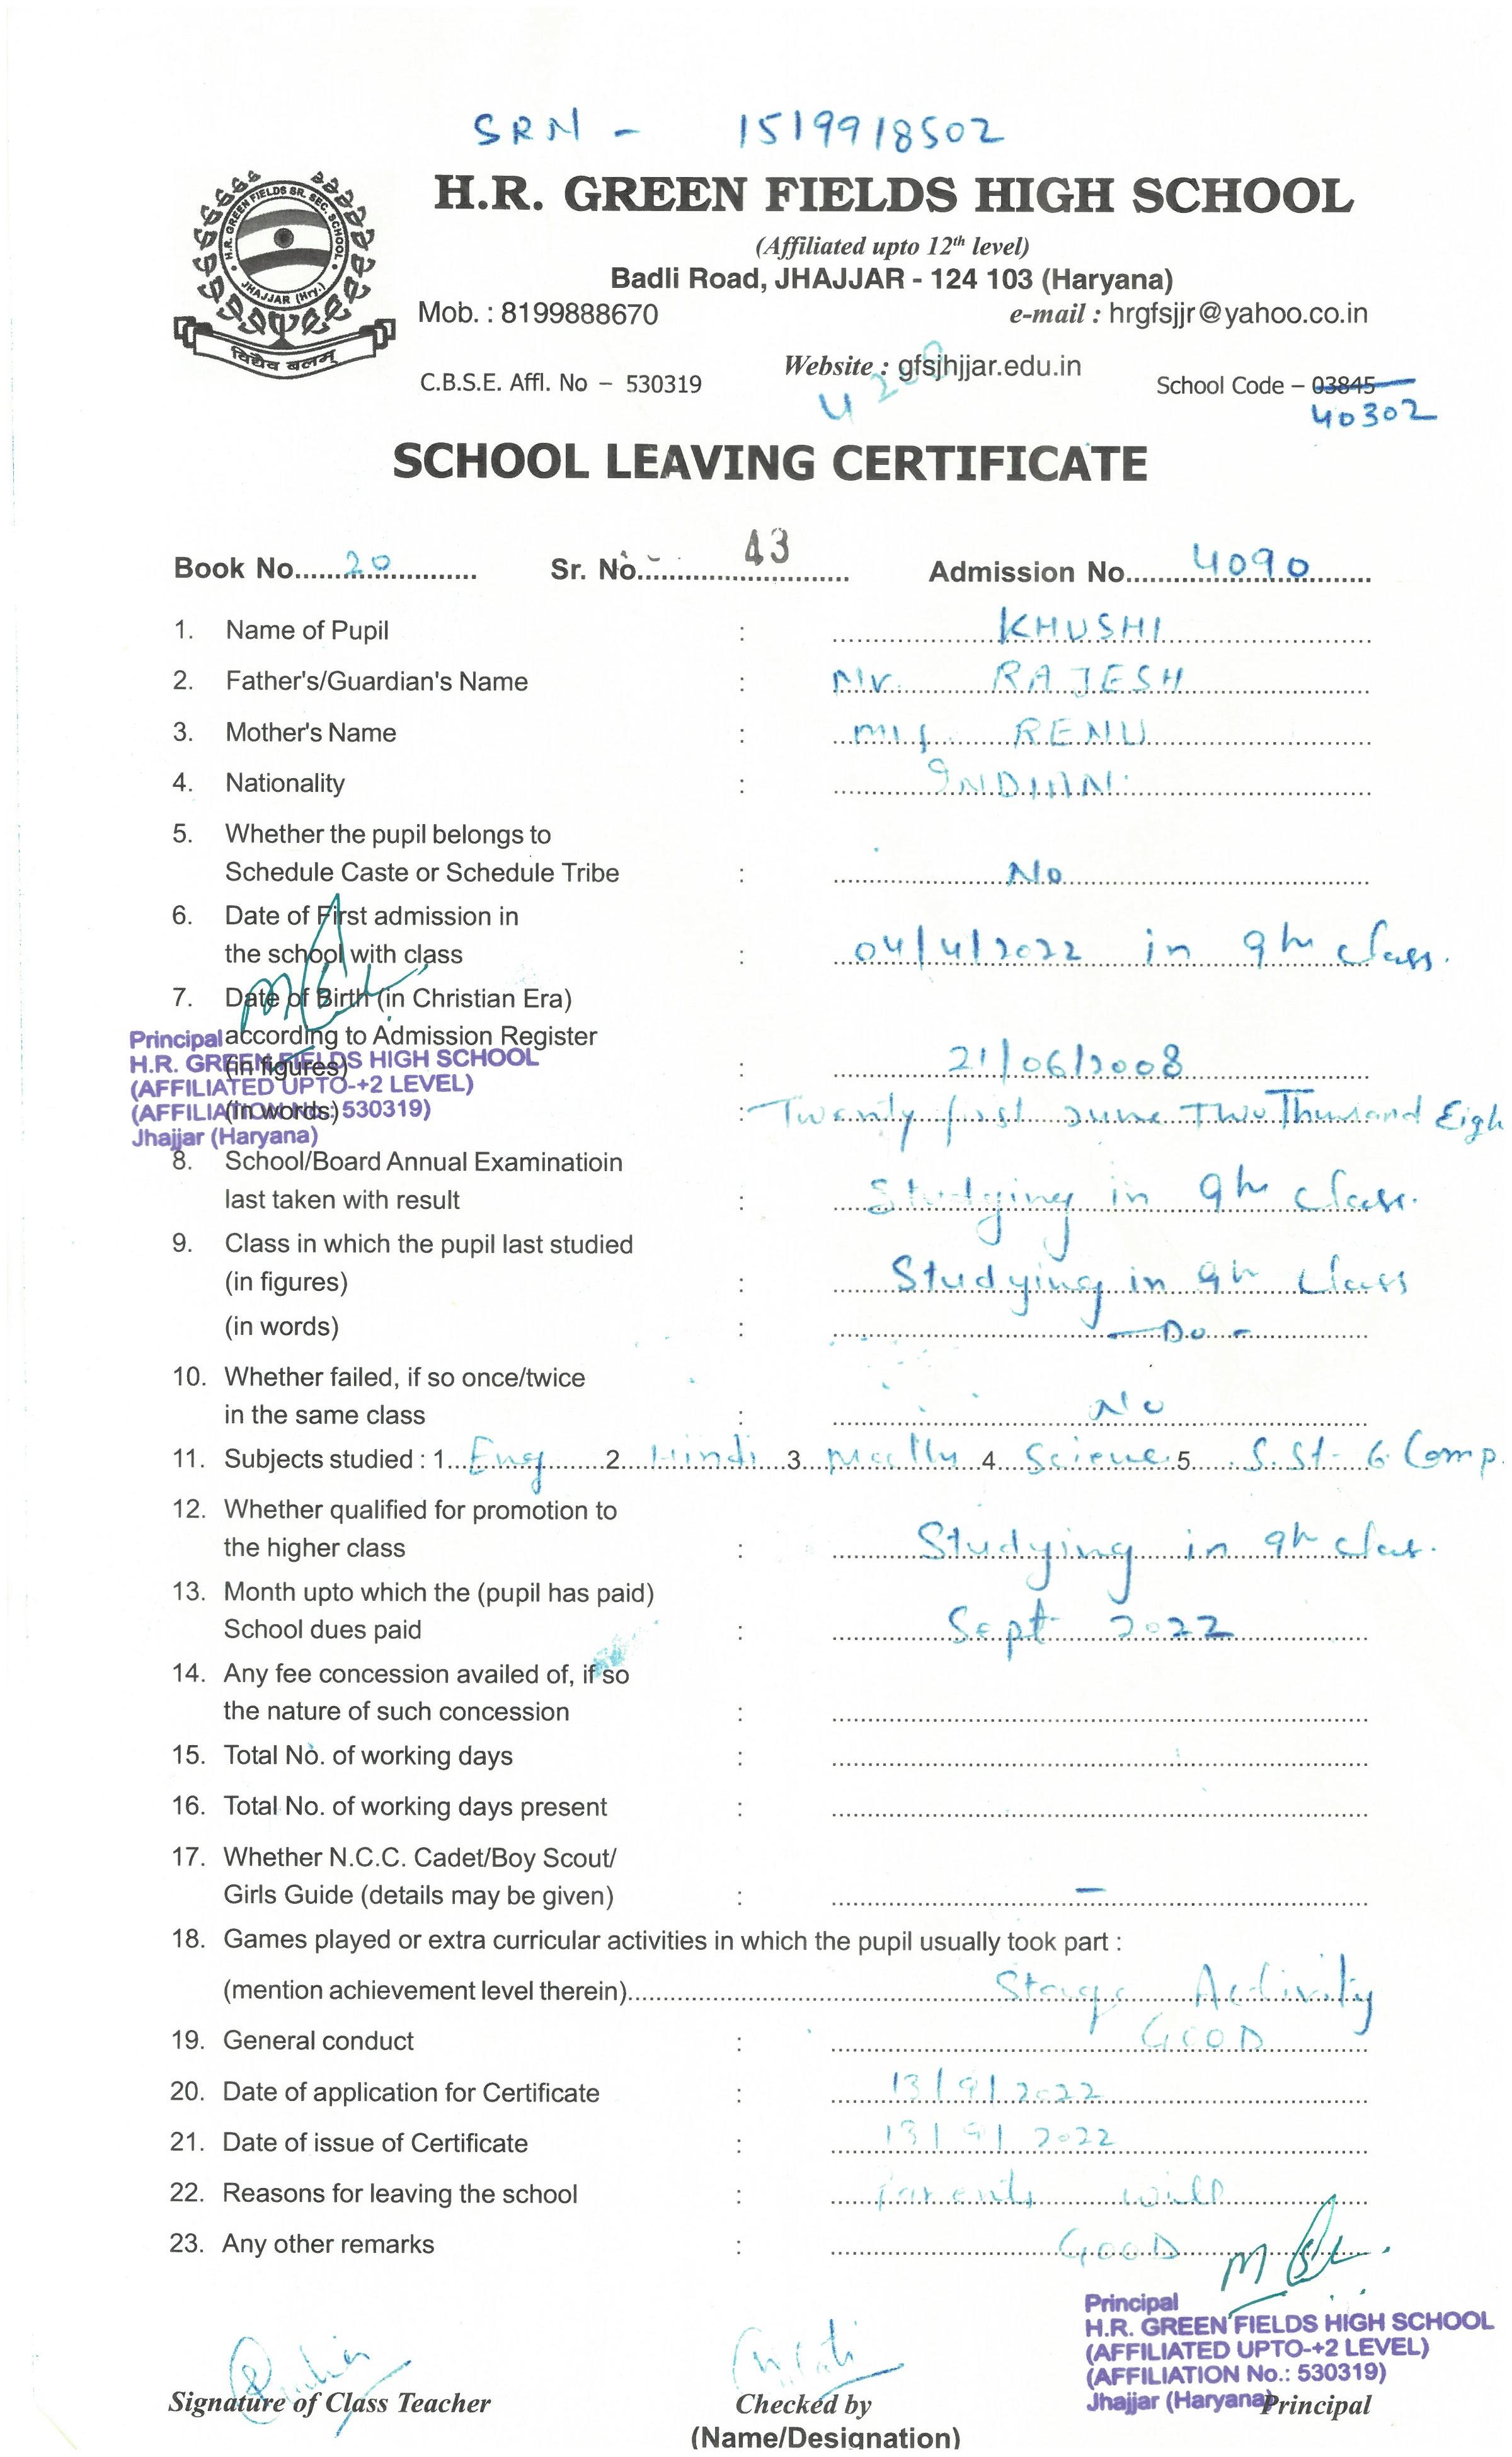 SRN - 1519918502
H.R. GREEN FIELDS HIGH SCHOOL
(Affiliated upto 12th level)
Badli Road, JHAJJAR - 124 103 (Haryana)
Mob. : 8199888670 e-mail : hrgfsjjr@yahoo.co.in
H.R. GREEN FIELDS SR. SEC. SCHOOL
JHAJJAR (Hry.)
विद्यैव बलम्
Website : gfsjhjjar.edu.in
C.B.S.E. Affl. No – 530319 School Code – 03845
40302
SCHOOL LEAVING CERTIFICATE
Book No. 20 Sr. No. 43 Admission No. 4090
1. Name of Pupil : KHUSHI
2. Father's/Guardian's Name : Mr. RAJESH
3. Mother's Name : RENU
4. Nationality : INDIAN
5. Whether the pupil belongs to
Schedule Caste or Schedule Tribe : No
6. Date of First admission in
the school with class : 04/4/2022 in 9th class.
7. Date of Birth (in Christian Era)
according to Admission Register
(in figures) : 21/06/2008
(in words) : Twenty first June Two Thousand Eigh
Principal
H.R. GREEN FIELDS HIGH SCHOOL
(AFFILIATED UPTO-+2 LEVEL)
(AFFILIATION No.: 530319)
Jhajjar (Haryana)
8. School/Board Annual Examinatioin
last taken with result : Studying in 9th class.
9. Class in which the pupil last studied
(in figures) : Studying in 9th class
(in words) : — Do -
10. Whether failed, if so once/twice
in the same class : No
11. Subjects studied : 1. Eng 2. Hindi 3. 4. Science 5. S.St- 6. Comp.
12. Whether qualified for promotion to
the higher class : Studying in 9th class.
13. Month upto which the (pupil has paid)
School dues paid : Sept 2022
14. Any fee concession availed of, if so
the nature of such concession :
15. Total No. of working days :
16. Total No. of working days present :
17. Whether N.C.C. Cadet/Boy Scout/
Girls Guide (details may be given) : –
18. Games played or extra curricular activities in which the pupil usually took part :
(mention achievement level therein) Stage Activity
19. General conduct : GOOD
20. Date of application for Certificate : 13/9/2022
21. Date of issue of Certificate : 13/9/2022
22. Reasons for leaving the school : Parents will
23. Any other remarks : GOOD
Principal
H.R. GREEN FIELDS HIGH SCHOOL
(AFFILIATED UPTO-+2 LEVEL)
(AFFILIATION No.: 530319)
Jhajjar (Haryana)
Signature of Class Teacher Checked by Principal
(Name/Designation)